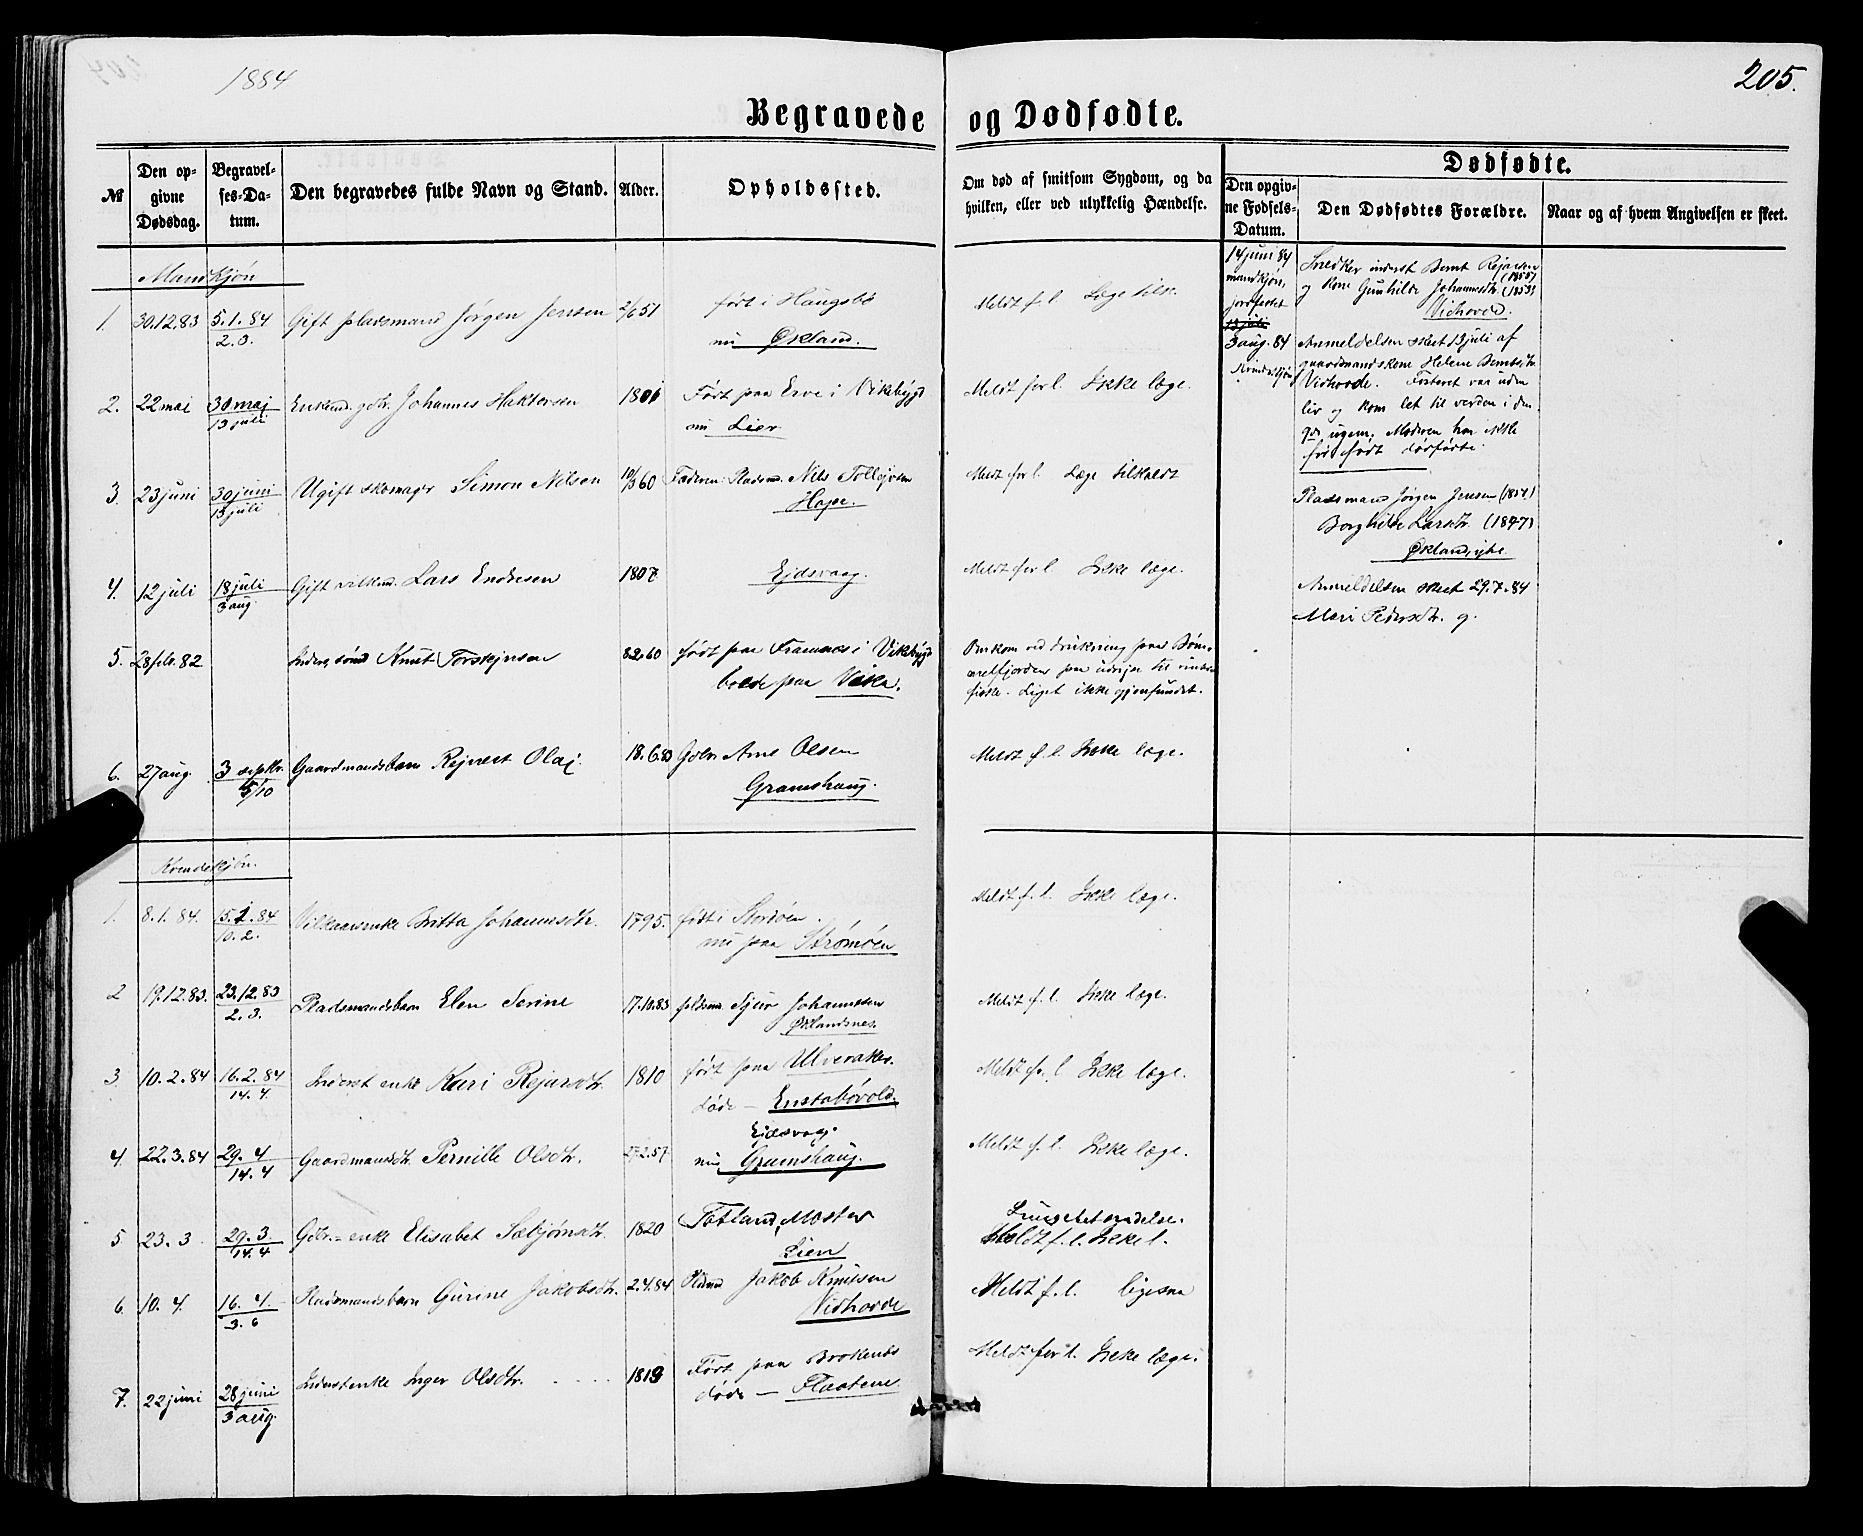 1884
205.
Begravede og Dødfødte.
№
Den opgivne Dødsdag.
Begravelses-Datum.
Den begravedes fulde Navn og Stand.
Alder.
Opholdssted.
Om død af smitsom Sygdom, og da hvilken, eller ved ulykkelig Hændelse.
Dødfødte.
Den opgivne Fødsels-Datum.
Den Dødfødtes Forældre.
Naar og af hvem Angivelsen er skeet.
Mandkjøn
1. 30.12.83 5.1.84 Gift pladsmand Jørgen Jensen 2/6 51 født i Haugsbø Meldt f. l. Læge tilk.
2.3. nu Økland.
2. 22 mai 30 maj Enkemd. gdbr. Johannes Haktorsen 1801 Født paa Erve i Vikebygd Meldt for l. Ikke læge.
13 juli nu Lier
3. 23 juni 30 juni Ugift skomager Simon Nilsen 10/3 60 Faderen: Pladsmd. Nils Tollejvsen Meldt for l. Læge tilkaldt
13 juli Hope.
4. 12 juli 18 juli Gift Lars Endresen 1807 Ejdsvaag. Meldt for l. Ikke læge.
3 aug.
5. 28 febr. 82 Inders. sønd Knut Torskejnsen 82.60 født paa Framnes i Vikebygd Omkom ved drukning paa Bøm-
boede paa Vika. melfjorden paa udrejse til vinter-
fiske. Liget ikke gjenfundet.
6. 27 aug. 3 septbr. Gaardmandsbarn Rejnert Olaj 18.6.83 Gdbr. Arne Olsen Meldt f. l. Ikke læge.
5/10 Gramshaug.
14 juni 84
mandkjøn,
jordfæstet
13 juli
Snedker inderst Bernt Rejersen (1855)
og kone Gunhilde Johannesdtr. (1853)
Vidhovde.
3 aug. 84
Kvindekjøn
Anmeldelsen skeet 13 juli af
gaardmandskone Helene Berntsdtr.
Vidhovde. Fosteret var uden
liv og kom let til verden i den
9de ugem. Moderen har ikke
før født dødfødte.
Pladsmand Jørgen Jensen (1851)
Borghilde Larsdtr. (1847)
Økland, ytre
Anmeldelsen skeet 29.7.84
Mari Pedersdtr. g.
Kvindekjøn.
1. 8.1.84. 15.1.84 Vilkaarsenke Britta Johannesdtr. 1795. født i Stordøen. Meldt f. l. Ikke læge.
10.2. nu paa Strømøen
2 19.12.83. 23.12.83 Pladsmandsbarn Elen Serine 17.10.83 pldsm. Sjur Johannesen Meldt f. l. Ikke læge.
2.3. Øklandsnes.
3 10.2.84 16.2.84 Inderst enke Kari Rejarsdtr. 1810 født paa Ulveraker. Meldt for l Ikke læge.
14.4. døde – Enstabøvold.
4. 22.3.84 29.4 Gaardmandsdtr. Pernille Olsdtr. 27.2.57 Ejdsvag. Meldt f. l. Ikke læge.
14.4 nu Gramshaug.
5 23.3 29.3. Gdbr. – enke Elisabet Sæbjørnsdtr. 1820 Totland, Moster Lungebetændelse.
14.4 Lien Meldt f. l. Ikke l.
6. 10.4. 16.4. Pladsmandsbarn Gurine Jakobsdtr. 2.4.84 Pldsmd Jakob Knutsen Meldt f. l. ligesaa
3.6 Vidhovde
7. 22 juni 28 juni Inderstenke Inger Olsdtr. 1819 Født paa Brokenes Meldt for l. Ikke læge.
3 aug. døde – Flaatene